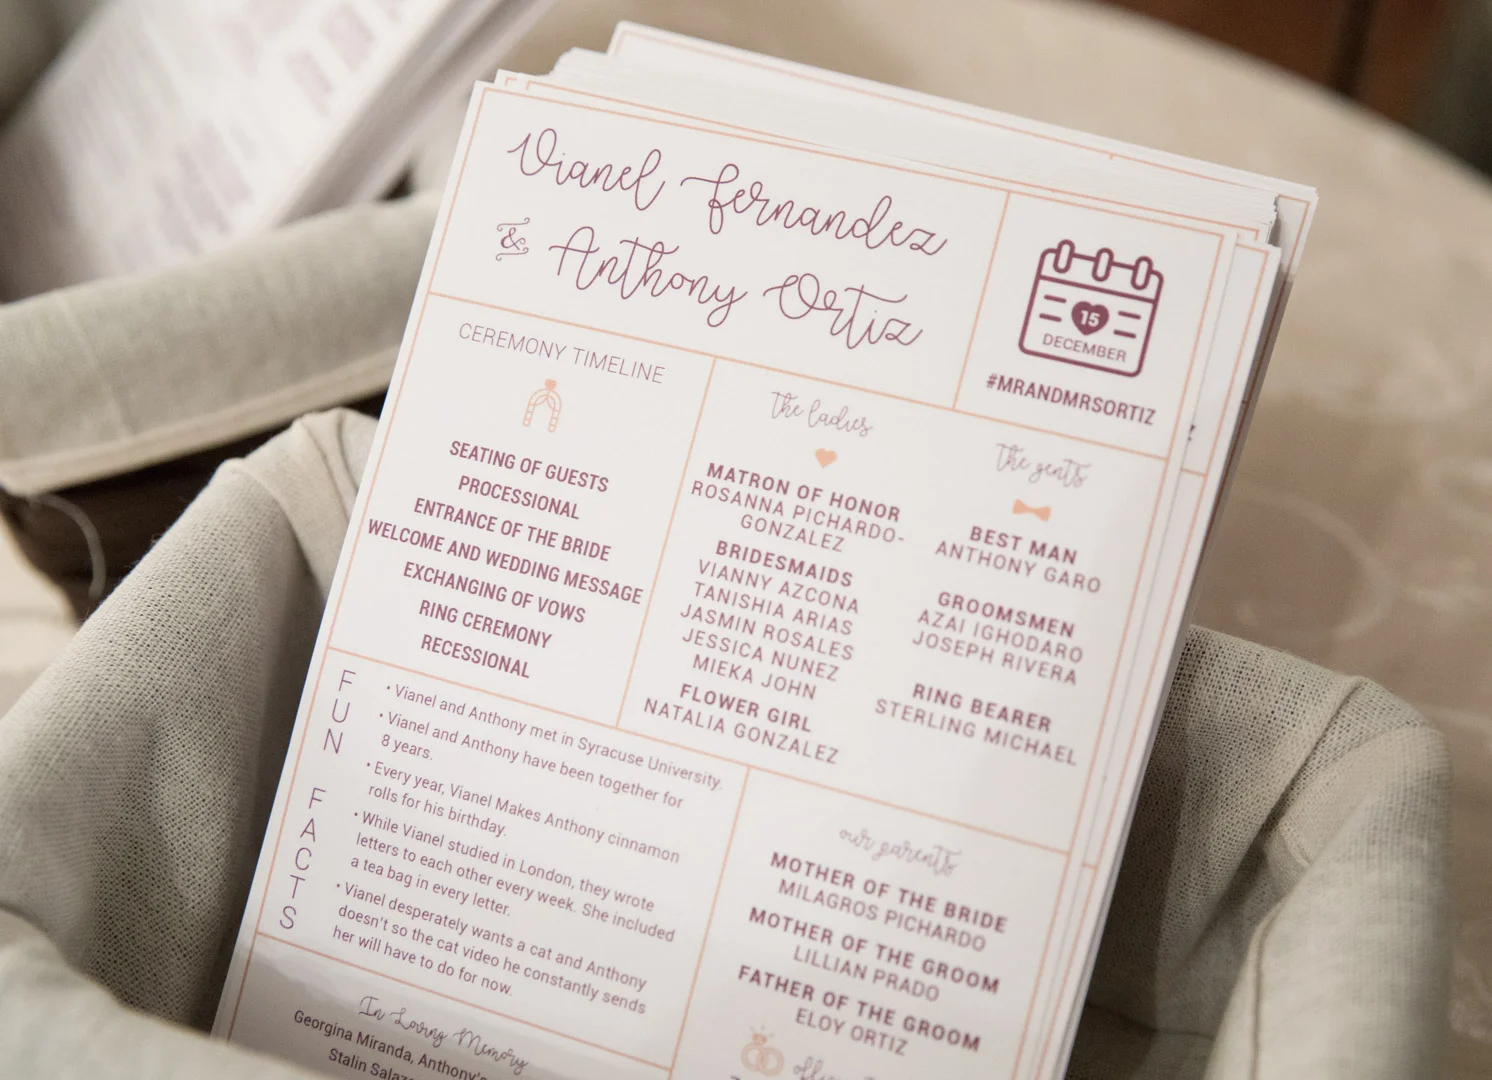 Vianel Fernandez
& Anthony Ortiz
15
DECEMBER
#MRANDMRSORTIZ
CEREMONY TIMELINE
SEATING OF GUESTS
PROCESSIONAL
ENTRANCE OF THE BRIDE
WELCOME AND WEDDING MESSAGE
EXCHANGING OF VOWS
RING CEREMONY
RECESSIONAL
The ladies
MATRON OF HONOR
ROSANNA PICHARDO-
GONZALEZ
BRIDESMAIDS
VIANNY AZCONA
TANISHIA ARIAS
JASMIN ROSALES
JESSICA NUNEZ
MIEKA JOHN
FLOWER GIRL
NATALIA GONZALEZ
The gents
BEST MAN
ANTHONY GARO
GROOMSMEN
AZAI IGHODARO
JOSEPH RIVERA
RING BEARER
STERLING MICHAEL
FUN FACTS
• Vianel and Anthony met in Syracuse University.
• Vianel and Anthony have been together for
8 years.
• Every year, Vianel Makes Anthony cinnamon
rolls for his birthday.
• While Vianel studied in London, they wrote
letters to each other every week. She included
a tea bag in every letter.
• Vianel desperately wants a cat and Anthony
doesn't so the cat video he constantly sends
her will have to do for now.
our parents
MOTHER OF THE BRIDE
MILAGROS PICHARDO
MOTHER OF THE GROOM
LILLIAN PRADO
FATHER OF THE GROOM
ELOY ORTIZ
In Loving Memory
Georgina Miranda, Anthony's
Stalin